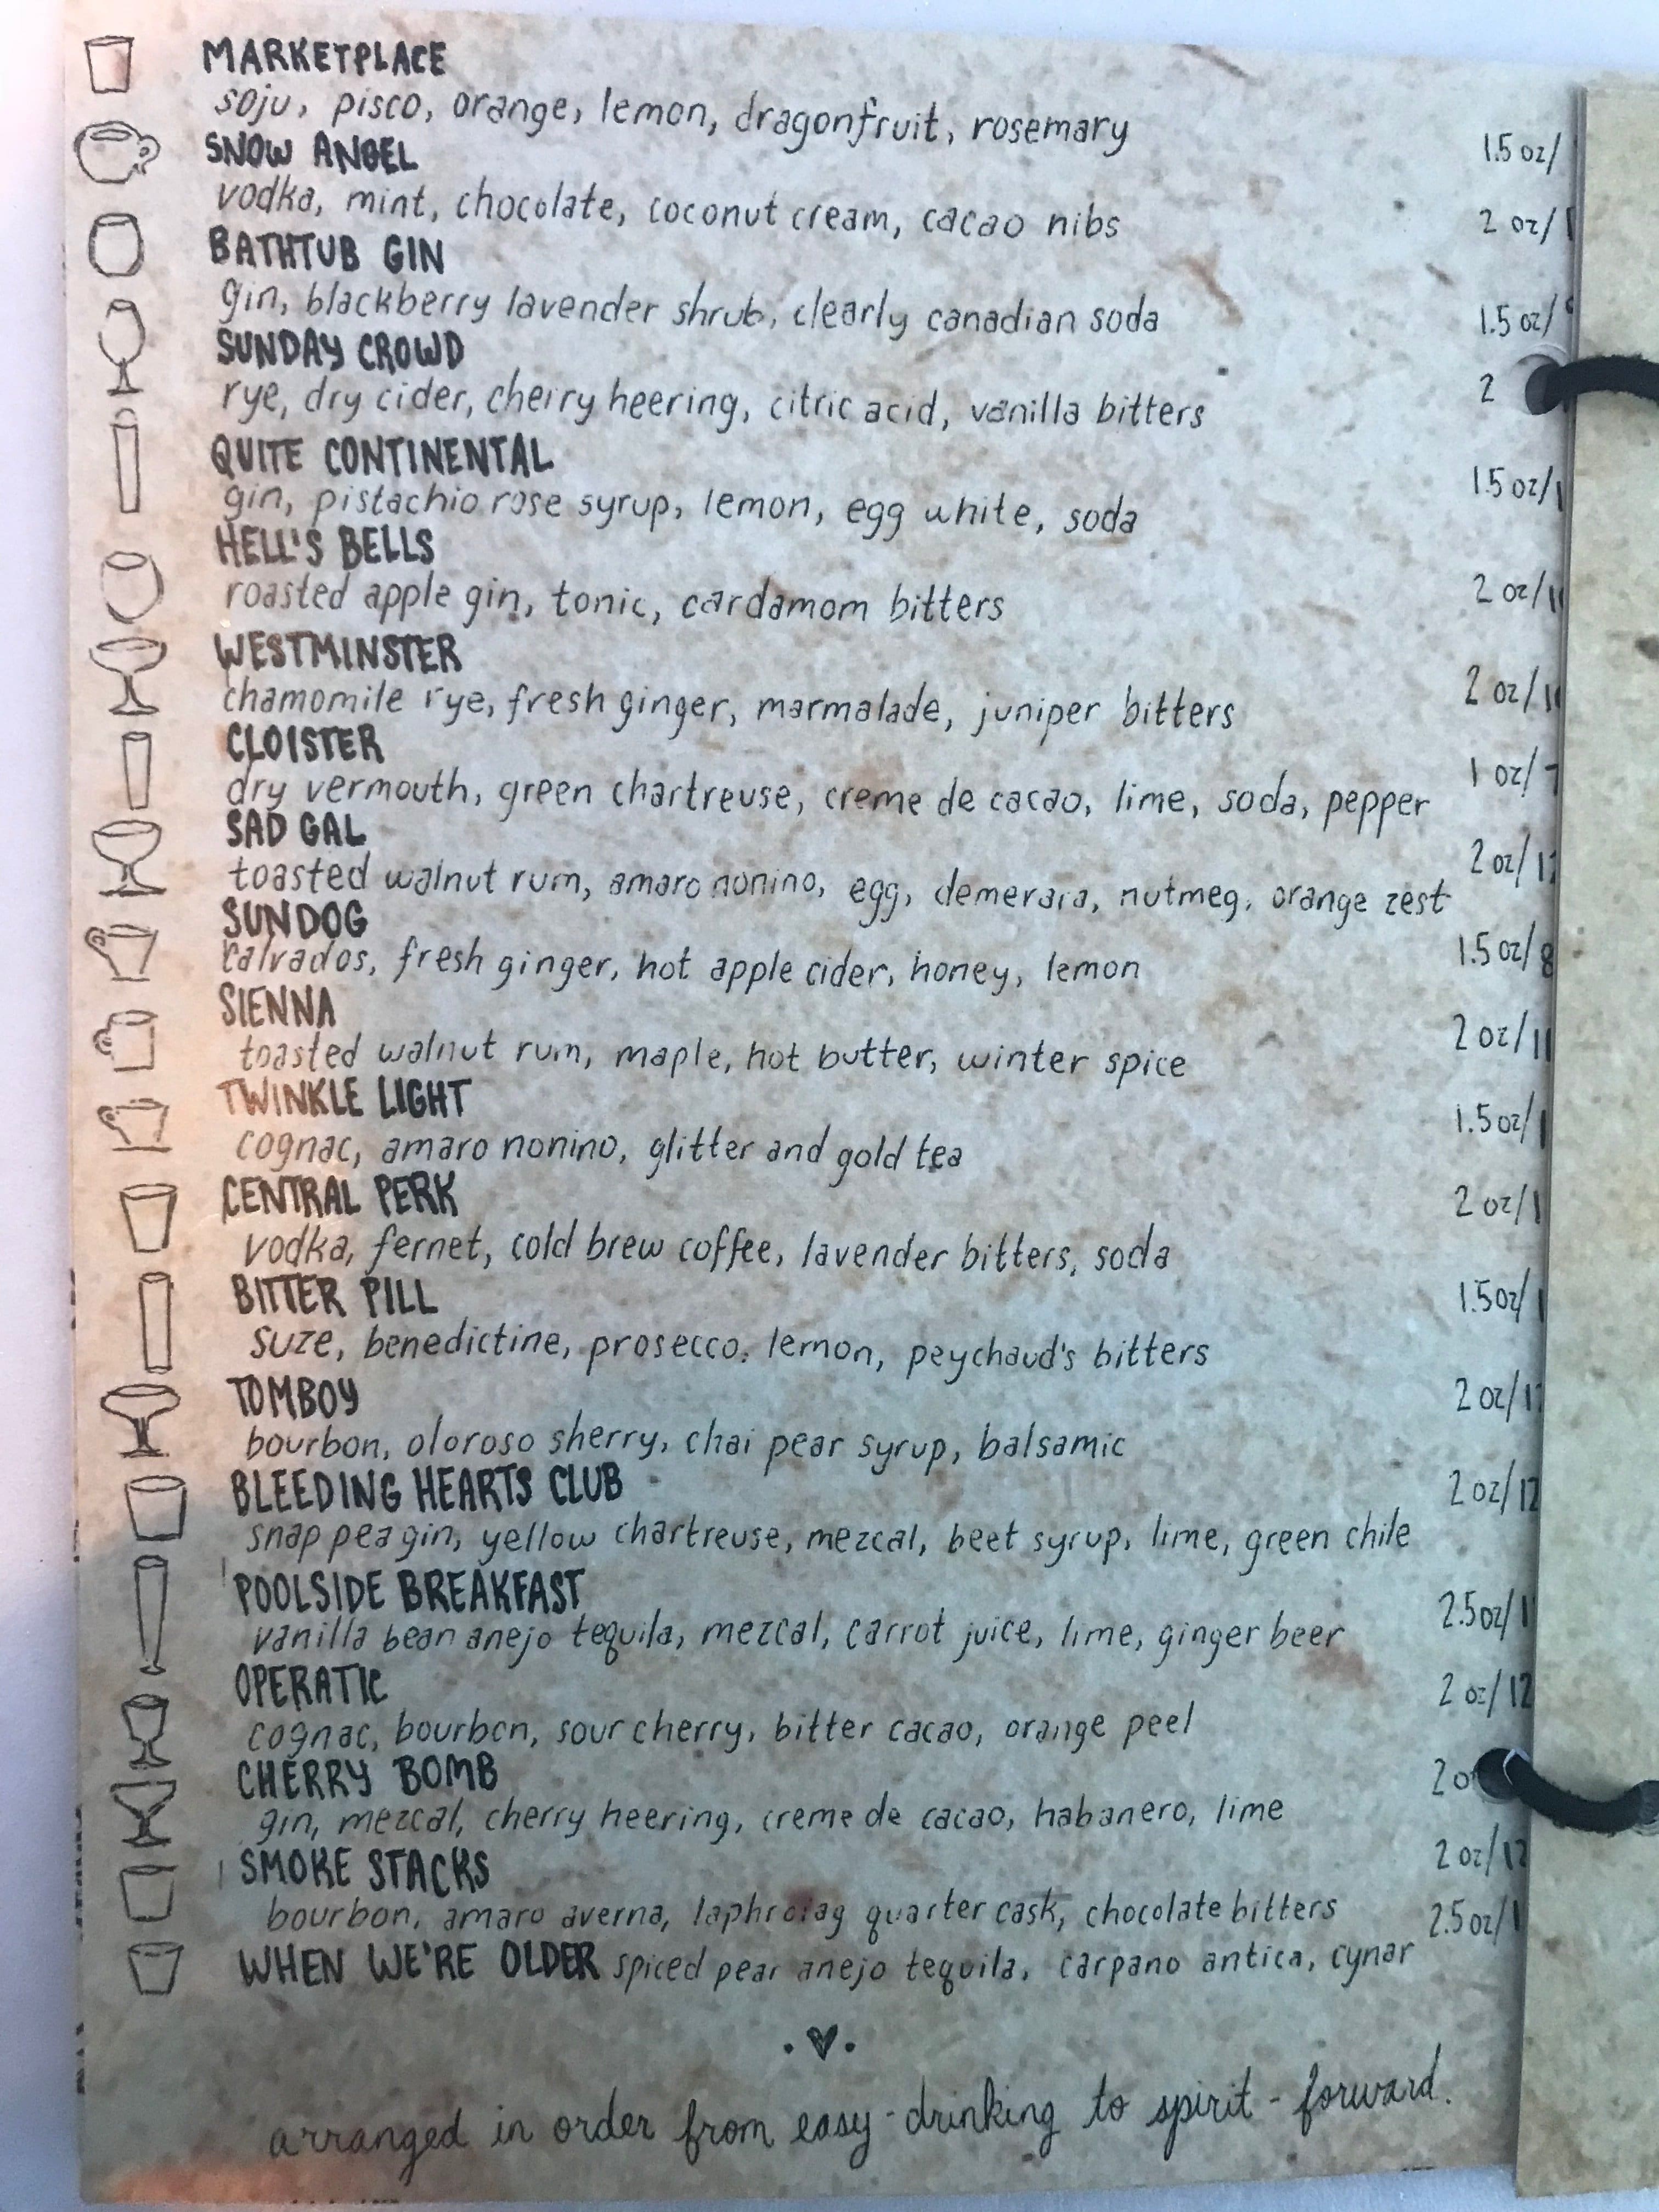 MARKETPLACE
soju, pisco, orange, lemon, dragonfruit, rosemary 1.5 oz/
SNOW ANGEL
vodka, mint, chocolate, coconut cream, cacao nibs 2 oz/
BATHTUB GIN
gin, blackberry lavender shrub, clearly canadian soda 1.5 oz/
SUNDAY CROWD
rye, dry cider, cherry heering, citric acid, vanilla bitters 2
QUITE CONTINENTAL
gin, pistachio rose syrup, lemon, egg white, soda 1.5 oz/
HELL'S BELLS
roasted apple gin, tonic, cardamom bitters 2 oz/
WESTMINSTER
chamomile rye, fresh ginger, marmalade, juniper bitters 2 oz/
CLOISTER
dry vermouth, green chartreuse, creme de cacao, lime, soda, pepper 1 oz/7
SAD GAL
toasted walnut rum, amaro nonino, egg, demerara, nutmeg, orange zest 2 oz/
SUNDOG
calvados, fresh ginger, hot apple cider, honey, lemon 1.5 oz/8
SIENNA
toasted walnut rum, maple, hot butter, winter spice 2 oz/11
TWINKLE LIGHT
cognac, amaro nonino, glitter and gold tea 1.5 oz/
CENTRAL PERK
vodka, fernet, cold brew coffee, lavender bitters, soda 2 oz/
BITTER PILL
suze, benedictine, prosecco, lemon, peychaud's bitters 1.5 oz/
TOMBOY
bourbon, oloroso sherry, chai pear syrup, balsamic 2 oz/
BLEEDING HEARTS CLUB
snap pea gin, yellow chartreuse, mezcal, beet syrup, lime, green chile 2 oz/12
POOLSIDE BREAKFAST
vanilla bean anejo tequila, mezcal, carrot juice, lime, ginger beer 2.5 oz/
OPERATIC
cognac, bourbon, sour cherry, bitter cacao, orange peel 2 oz/12
CHERRY BOMB
gin, mezcal, cherry heering, creme de cacao, habanero, lime 2 o
SMOKE STACKS
bourbon, amaro averna, laphroiag quarter cask, chocolate bitters 2 oz/12
WHEN WE'RE OLDER spiced pear anejo tequila, carpano antica, cynar 2.5 oz/
arranged in order from easy-drinking to spirit-forward.